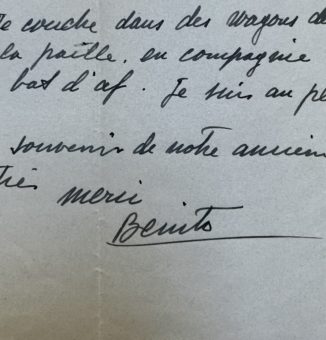 Je couche dans des wagons de
la paille, en compagnie
bat d'af. Je suis au pe
souvenir de notre ancien
très merci
Benito